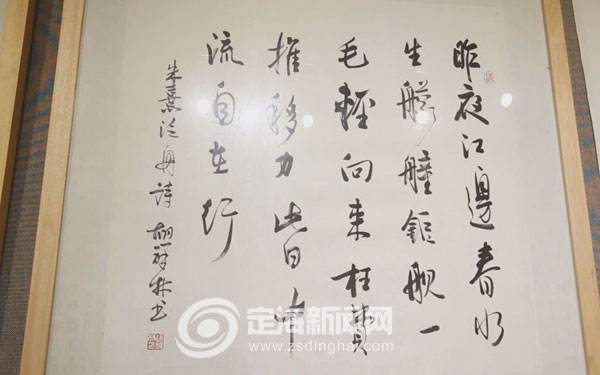 昨夜江邊春水
生艨艟鉅舰一
毛輕向来枉費
推移力此日中
流自在行
朱熹泛舟詩 祥林书
定海新闻网
www.zsdinghai.com